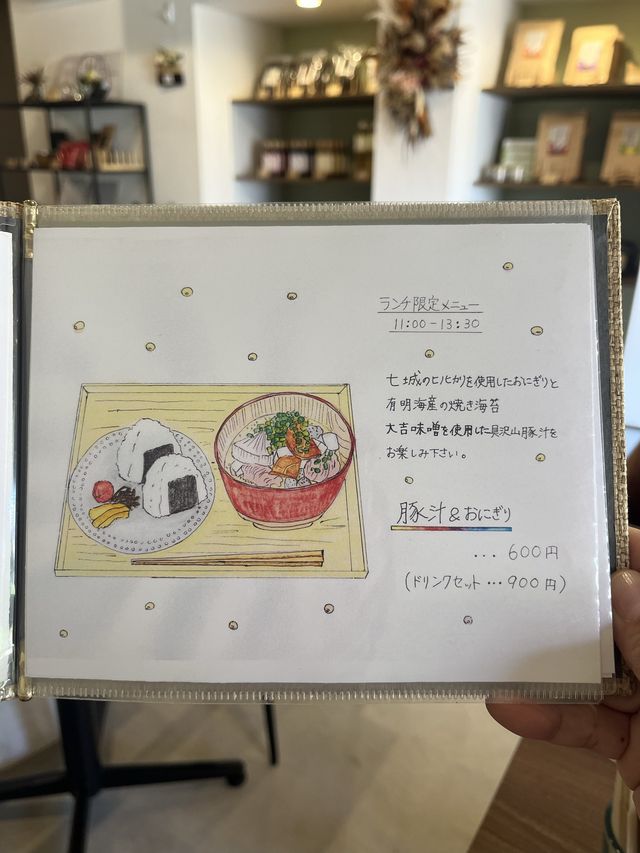 ランチ限定メニュー
11:00-13:30
七城のヒノヒカリを使用したおにぎりと
有明海産の焼き海苔
大吉味噌を使用した具沢山豚汁を
お楽しみ下さい。
豚汁&おにぎり
... 600円
(ドリンクセット...900円)